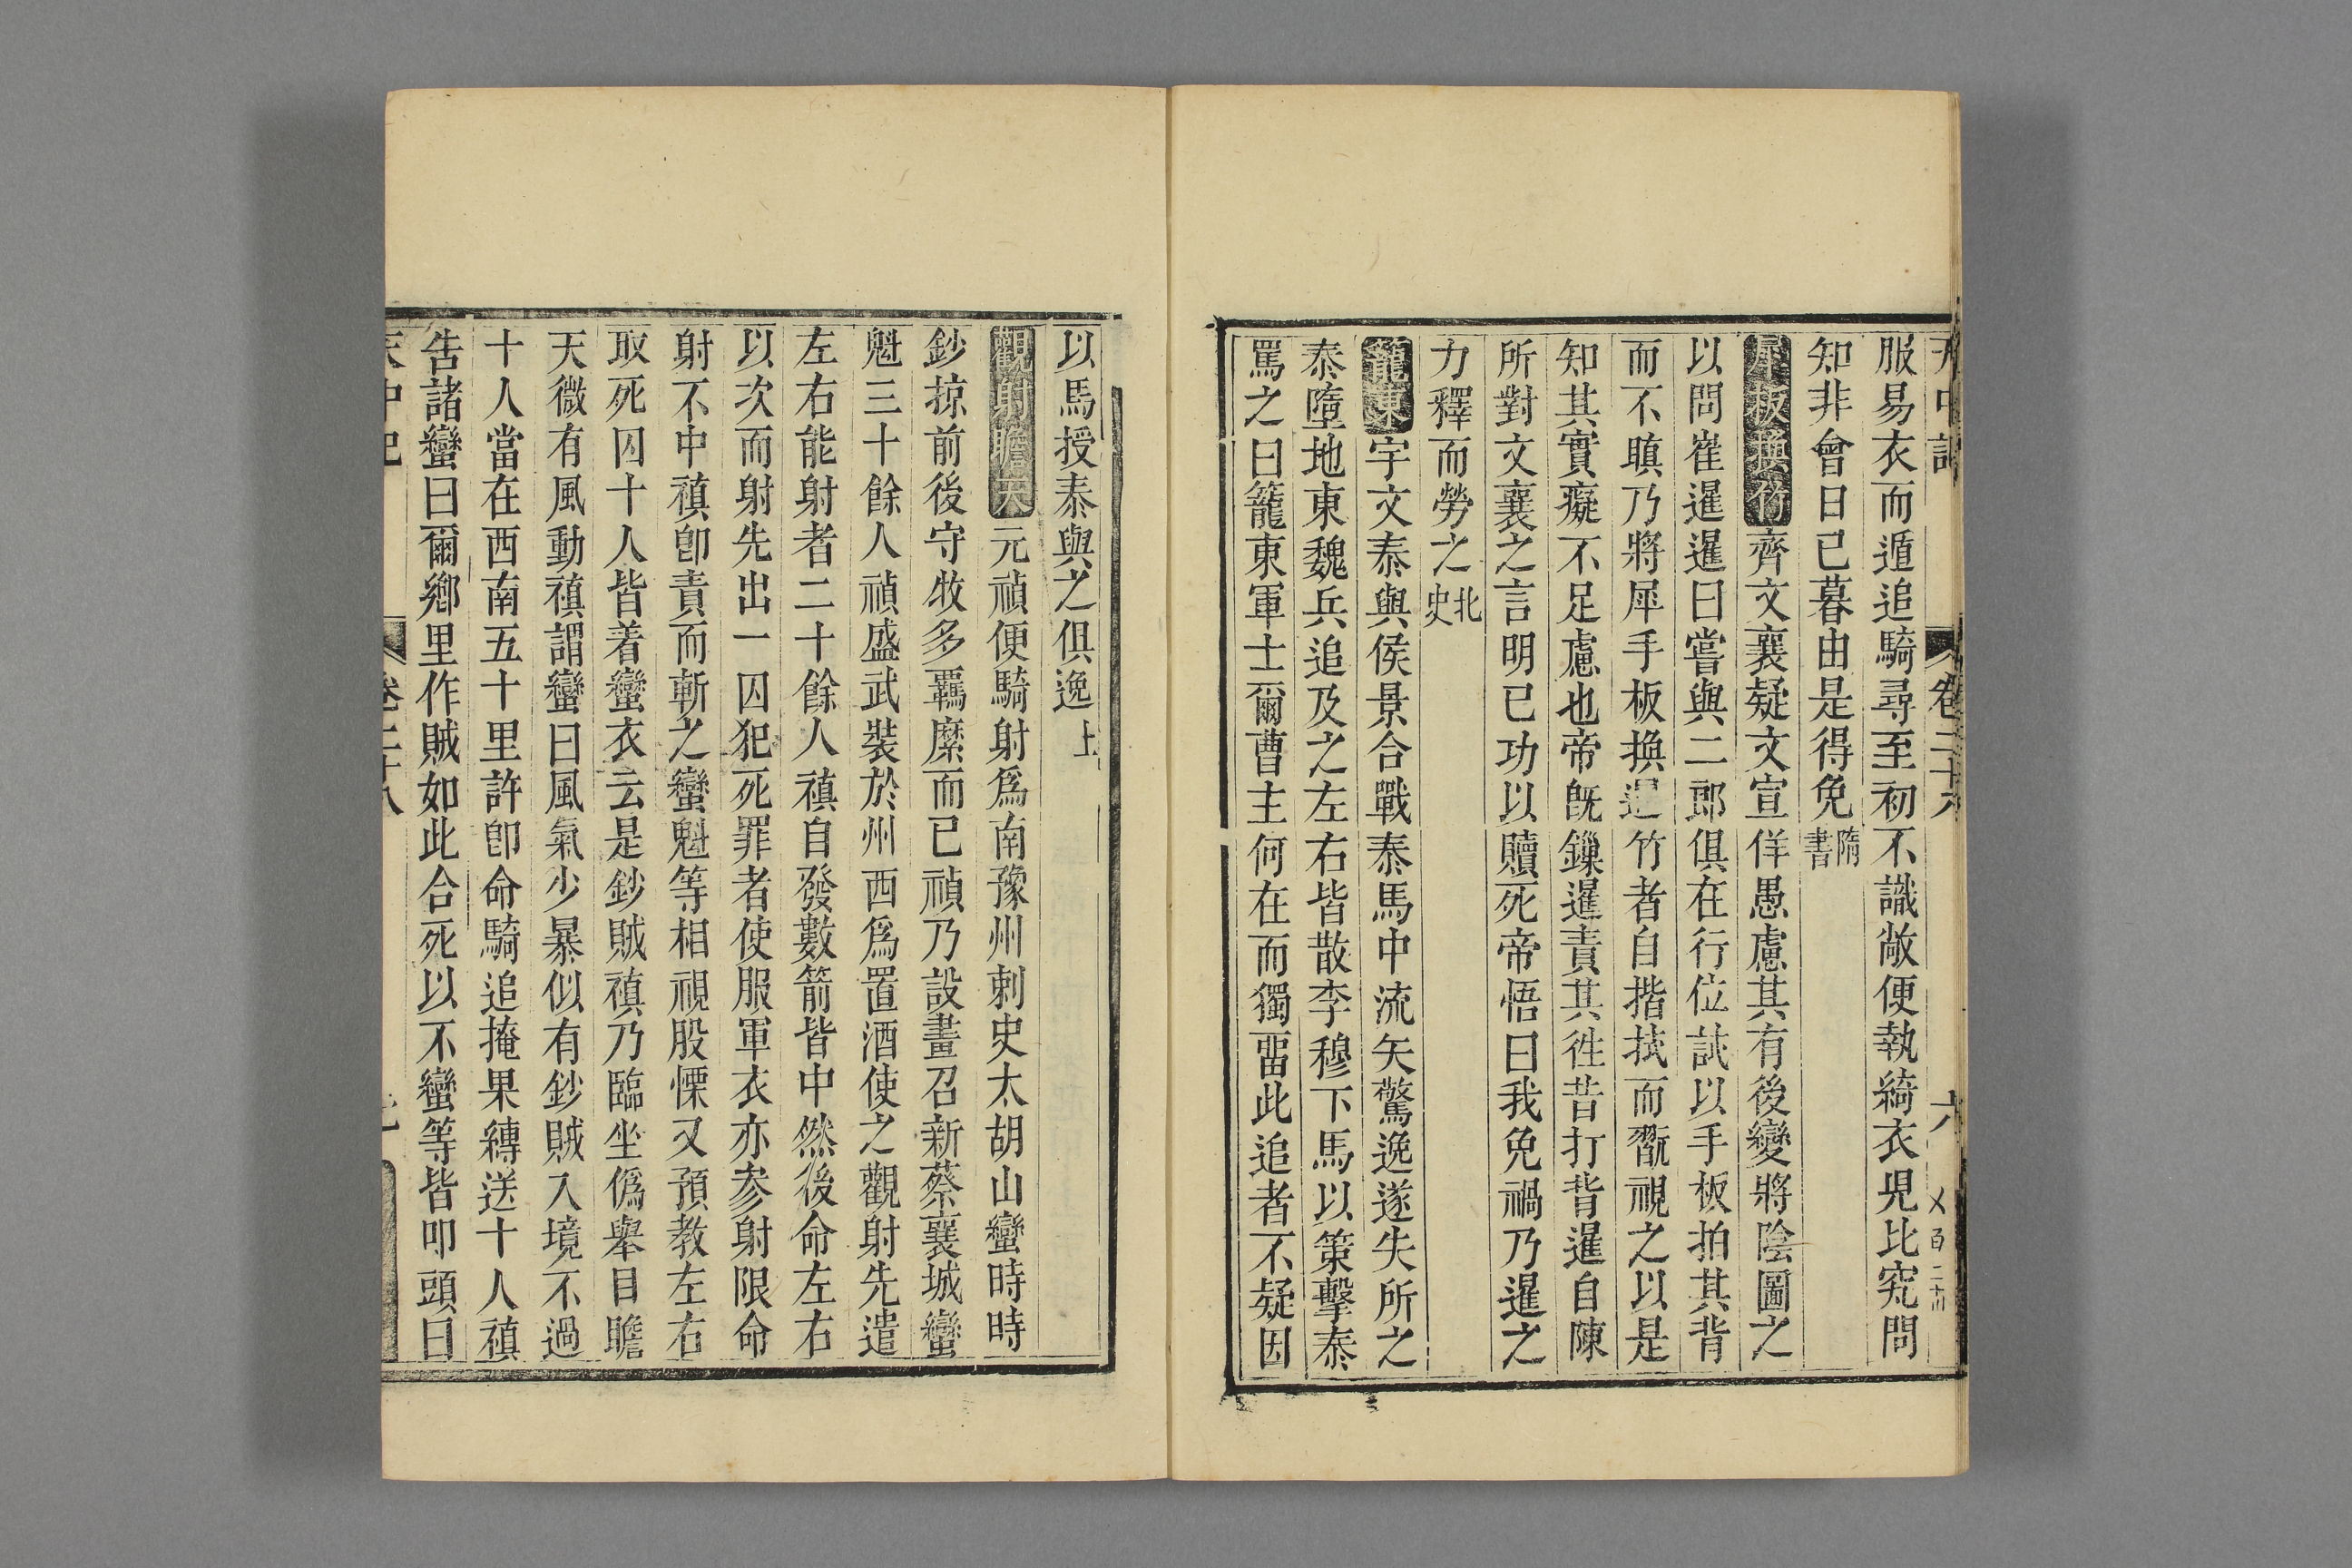 服易衣而遁追騎尋至初不識敞便執綺衣児比究問
知非會日已暮由是得免隋書
犀板換竹齊文襄疑文宣佯愚慮其有後變將陰圖之
以問崔暹暹曰嘗與二郎俱在行位試以手板拍其背
而不瞋乃將犀手板換暹竹者自揩拭而翫視之以是
知其實癡不足慮也帝旣鏁暹責其徃昔打背暹自陳
所對文襄之言明已功以贖死帝悟曰我免禍乃暹之
力釋而勞之北史
籠東宇文泰與侯景合戰泰馬中流矢驚逸遂失所之
泰墮地東魏兵追及之左右皆散李穆下馬以策擊泰
罵之曰籠東軍士爾曹主何在而獨畱此追者不疑因
以馬授泰與之俱逸上
觀射瞻天元禎便騎射爲南豫州刺史太胡山蠻時時
鈔掠前後守牧多羈縻而已禎乃設畫召新蔡襄城蠻
魁三十餘人禎盛武裝於州西爲置酒使之觀射先遣
左右能射者二十餘人禛自發數箭皆中然後命左右
以次而射先出一囚犯死罪者使服軍衣亦参射限命
射不中禛卽責而斬之蠻魁等相視股慄又預教左右
取死囚十人皆着蠻衣云是鈔賊禛乃臨坐僞舉目瞻
天微有風動禛謂蠻曰風氣少暴似有鈔賊入境不過
十人當在西南五十里許卽命騎追掩果縛送十人禛
告諸蠻曰爾鄉里作賊如此合死以不蠻等皆叩頭曰